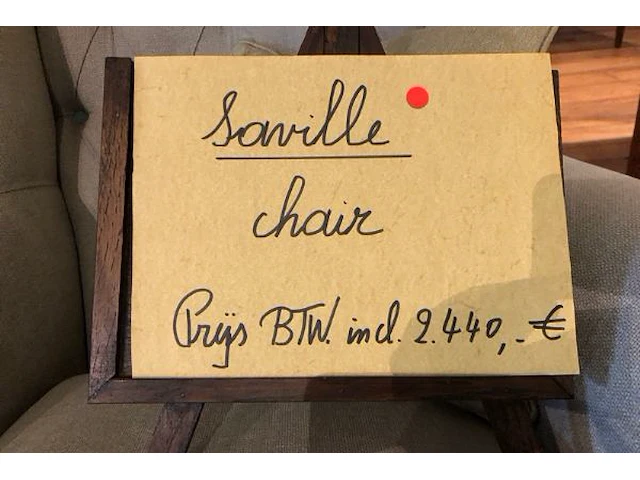 Saville
chair
Prijs BTW. incl. 2.440,- €